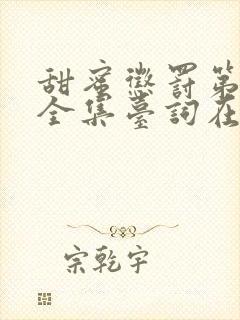 甜蜜懲罰第
全集臺詞在
宗乾宇